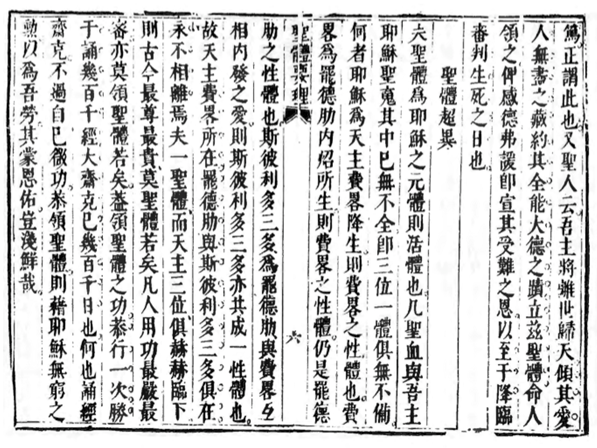 篤正謂此也又聖人云吾主將離世歸天傾其愛
人無盡之藏約其全能大德之蹟立茲聖體命人
領之俾感德弗諼卽宣其受難之恩以至于降臨
審判生死之日也
聖體超異
夫聖體爲耶穌之元體則活體也凡聖血與吾主
耶穌聖䰟其中巳無不全卽三位一體俱無不備
何者耶穌爲天主費畧降生則費畧之性體也費
畧爲罷德肋内炤所生則費畧之性體仍是罷德
聖體要理
六
肋之性體也斯彼利多三多爲罷德肋與費畧互
相内發之愛則斯彼利多三多亦共成一性體也
故天主費畧所在罷德肋與斯彼利多三多俱在
永不相離焉夫一聖體而天主三位俱赫赫臨下
則古今最尊最貴莫聖體若矣凡人用功最嚴最
審亦莫領聖體若矣葢領聖體之功恭行一次勝
于誦幾百千經大齋克巳幾百千日也何也誦經
齋克不過自巳微功恭領聖體則藉耶穌無窮之
勲以爲吾勞其蒙恩佑豈淺鮮哉